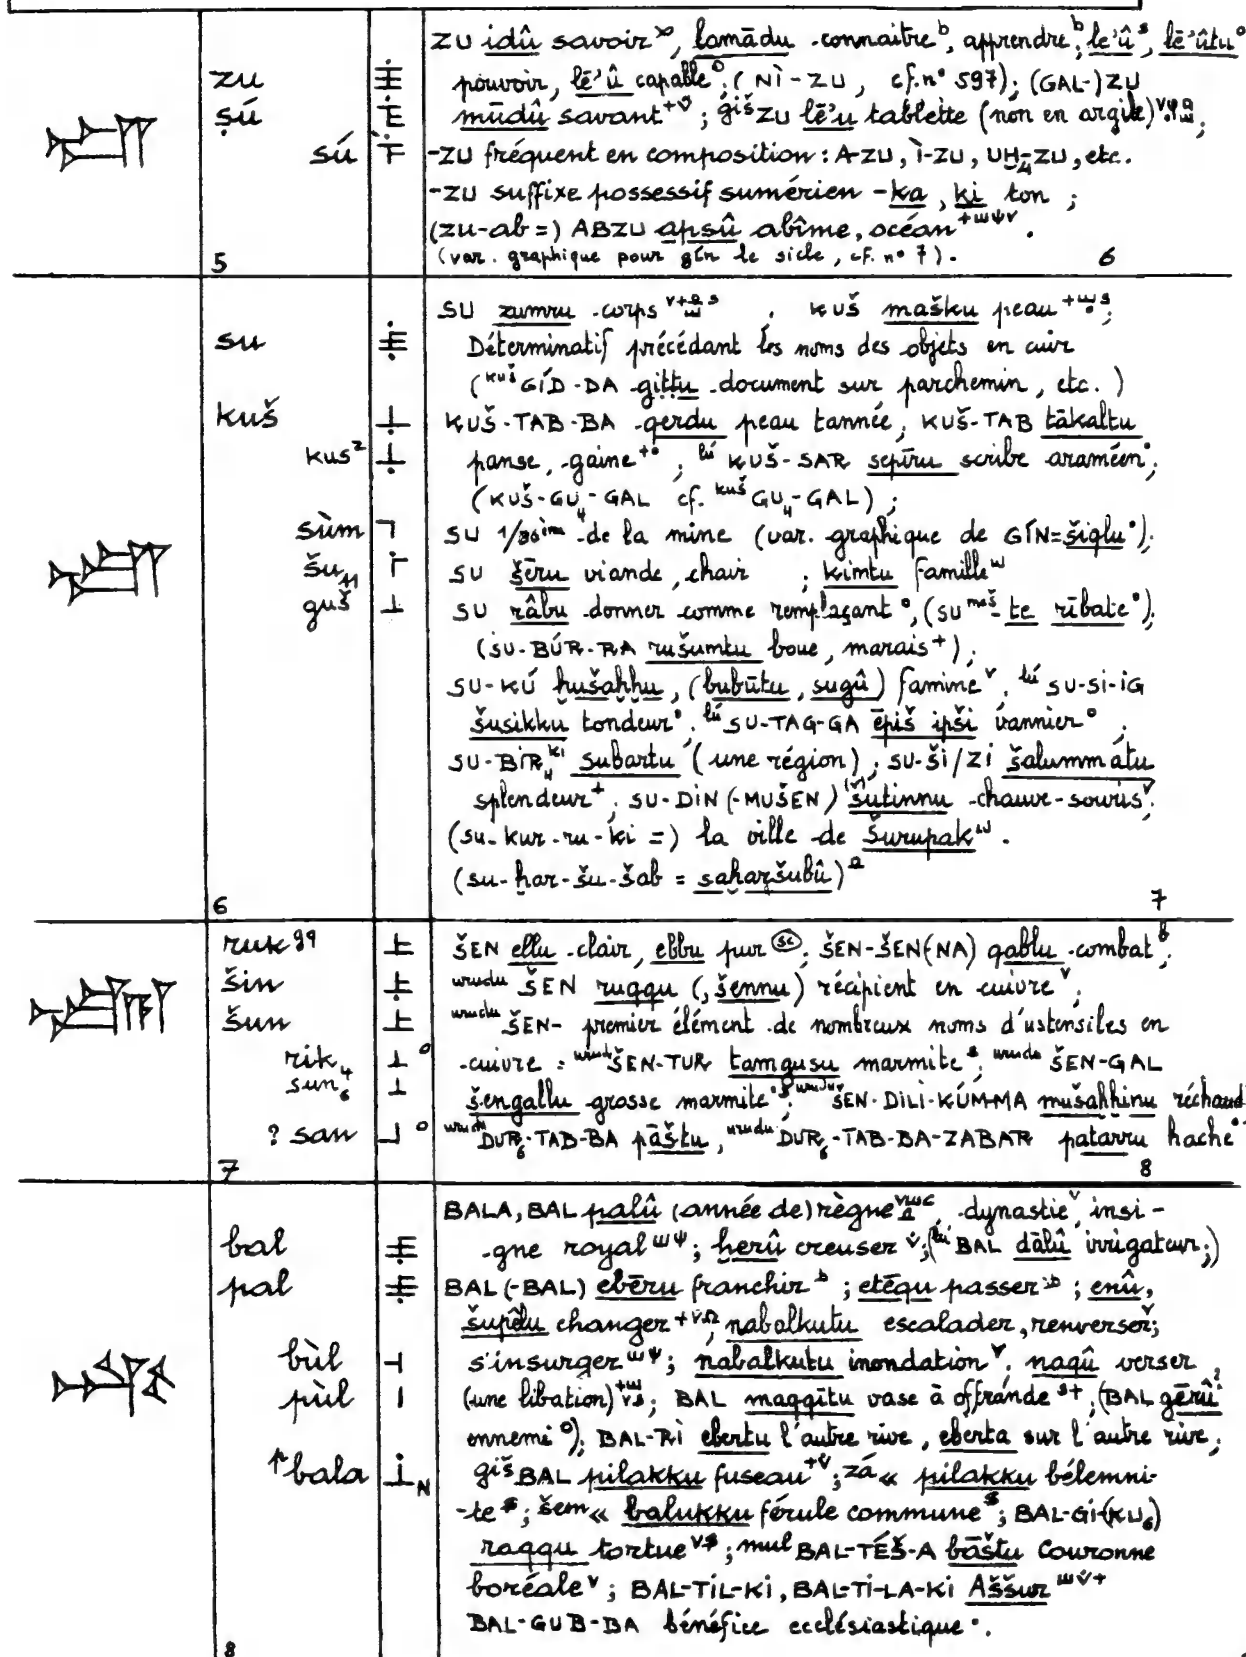 ZU idû savoir, lamādu connaitre, apprendre, le'û, lē'ûtu
zu pouvoir, lē'û capable; (NÌ-ZU, cf. n° 597); (GAL-)ZU
ṣú mūdû savant; giš ZU lē'u tablette (non en argile);
sú -ZU fréquent en composition: A-ZU, Ì-ZU, UH₄-ZU, etc.
-ZU suffixe possessif sumérien -ka, ki ton;
(zu-ab=) ABZU apsû abîme, océan.
5 (var. graphique pour gín le sicle, cf. n° 7). 6
SU zumru corps. KUŠ mašku peau;
su Déterminatif précédant les noms des objets en cuir
(kuš GÍD-DA giṭṭu document sur parchemin, etc.)
kuš KUŠ-TAB-BA gerdu peau tannée, KUŠ-TAB tākaltu
kus² panse, gaine; lú KUŠ-SAR sepīru scribe araméen;
(KUŠ-GU₄-GAL cf. kuš GU₄-GAL);
sùm SU de la mine (var. graphique de GÍN=šiqlu);
šu₁₁ SU šēru viande, chair; kimtu famille
guš SU râbu donner comme remplaçant, (SU meš-te rībate);
(SU-BÚR-RA rušumtu boue, marais);
SU-KÚ ḫušaḫḫu, (bubūtu, sugû) famine, lú SU-SI-IG
šusikku tondeur, lú SU-TAG-GA ēpiš ipši vannier,
SU-BIR₄ ki subartu (une région); SU-ŠI/ZI šalummatu
splendeur, SU-DIN (-MUŠEN) šutinnu chauve-souris,
(su-kur-ru-ki =) la ville de Šurupak.
(su-ḫar-šu-šab = saḫaršubû)
6 7
ruk ŠEN ellu clair, ebbu pur; ŠEN-ŠEN(NA) qablu combat;
šin urudu ŠEN ruqqu (, šennu) récipient en cuivre;
šun urudu ŠEN- premier élément de nombreux noms d'ustensiles en
rik₄ cuivre: urudu ŠEN-TUR tamgusu marmite; urudu ŠEN-GAL
sun₆ šengallu grosse marmite; urudu ŠEN-DILI-KÚM-MA mušaḫḫinu réchaud
? san urudu DUR₆-TAB-BA pāštu, urudu DUR₆-TAB-BA-ZABAR patarru hache
7 8
BALA, BAL palû (année de) règne, dynastie, insi-
bal gne royal; ḫerû creuser; (lú BAL dālû irrigateur;)
pal BAL(-BAL) ebēru franchir; etēqu passer; enû,
šupêlu changer, nabalkutu escalader, renverser;
bùl s'insurger; nabalkutu inondation, naqû verser
pùl (une libation); BAL maqqītu vase à offrande, (BAL gērû
ennemi); BAL-RI ebertu l'autre rive, eberta sur l'autre rive;
bala giš BAL pilakku fuseau; zá « pilakku bélemni-
te; šem « balukku férule commune; BAL-GI-(KU₆)
raqqu tortue; mul BAL-TÉŠ-A bāštu Couronne
boréale; BAL-TIL-KI, BAL-TI-LA-KI Aššur
BAL-GUB-BA bénéfice ecclésiastique.
8